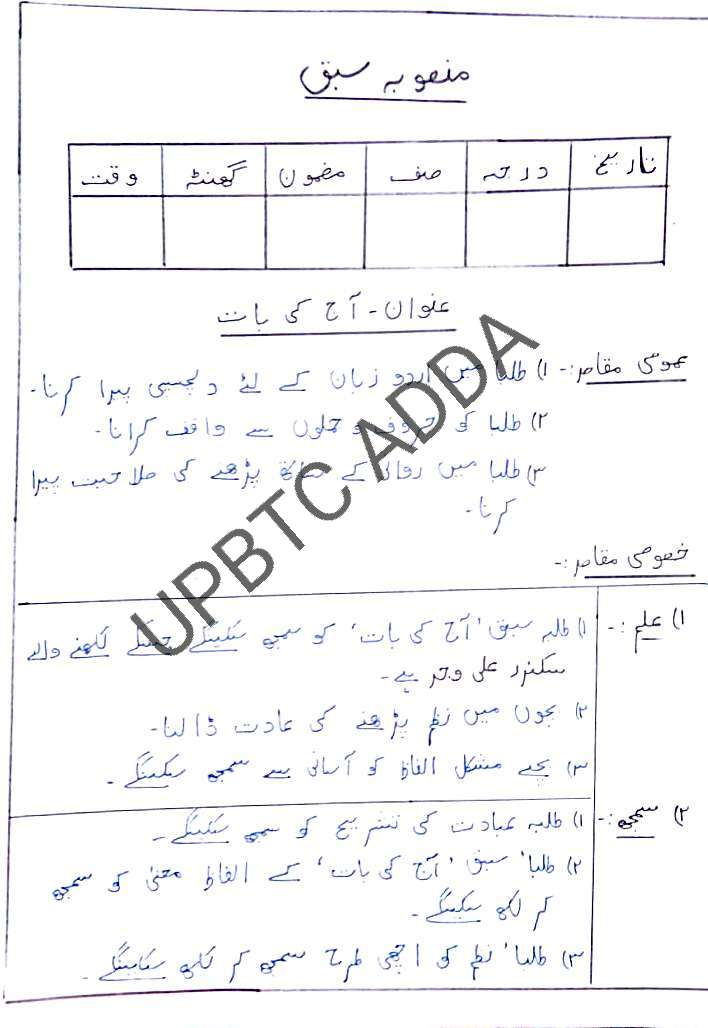 منصوبہ سبق
تاریخ درجہ صف مضمون گھنٹہ وقت
عنوان - آج کی بات
عمومی مقاصد :- ۱) طلبا میں اردو زبان کے لئے دلچسپی پیدا کرنا۔
۲) طلبا کو حروف و جملوں سے واقف کرانا۔
۳) طلبا میں روانی کے ساتھ پڑھنے کی صلاحیت پیدا
کرنا۔
خصوصی مقاصد :-
۱) علم :- ۱) طلبہ سبق 'آج کی بات' کو سمجھ سکینگے جسکے لکھنے والے
سکندر علی وجد ہے۔
۲) بچوں میں نظم پڑھنے کی عادت ڈالنا۔
۳) بچے مشکل الفاظ کو آسانی سے سمجھ سکینگے۔
۲) سمجھ :- ۱) طلبہ عبادت کی تشریح کو سمجھ سکینگے۔
۲) طلبا' سبق 'آج کی بات' کے الفاظ معنی کو سمجھ
کر لکھ سکینگے۔
۳) طلبا' نظم کو اچھی طرح سمجھ کر لکھ سکینگے۔
UPBTC ADDA